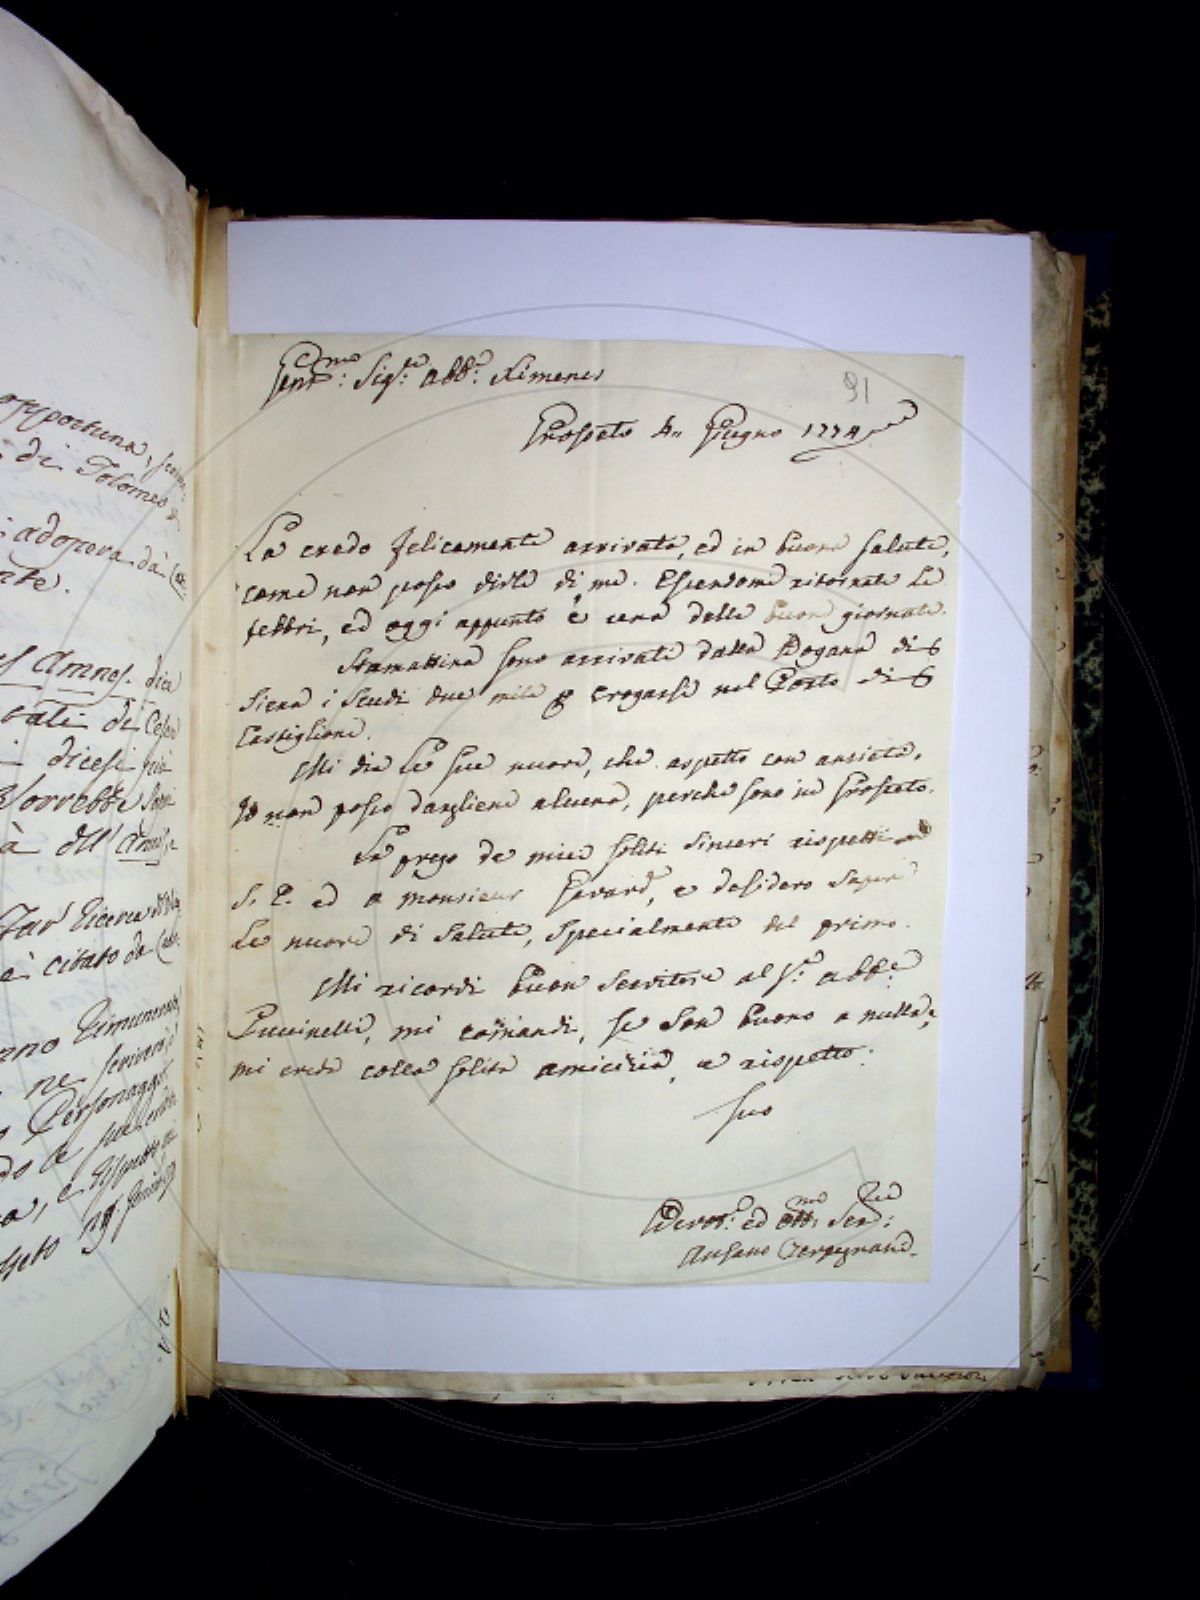 opportuna,
di Tolomeo
adopera da
Amnes. dice
dicesi
Vorrebbe
citato da
ne scriverà
Personaggi
91
Gent.mo Sig.re Abb.e Ximenes
Grosseto 4 Giugno 1774
La credo felicemente arrivata, ed in buona salute,
come non posso dirle di me. Essendomi ritornate le
febbri, ed oggi appunto è una delle buone giornate.
Stamattina sono arrivati dalla Dogana di
Siena i Scudi due mila erogarsi nel Porto di
Castiglione.
Mi dia le sue nuove, che aspetto con ansietà,
Io non posso dargliene alcuna, perche sono in Grosseto.
La prego de miei soliti sinceri rispetti al
S. P. ed a monsieur, e desidero sapere
le nuove di salute, specialmente del primo.
Mi ricordi buon servitore al S.r Abb.e
Puccinelli, mi comandi, se son buono a nulla, e
mi creda colla solita amicizia, e rispetto.
Suo
Devot.o ed Obb.mo Ser.re
Ansano